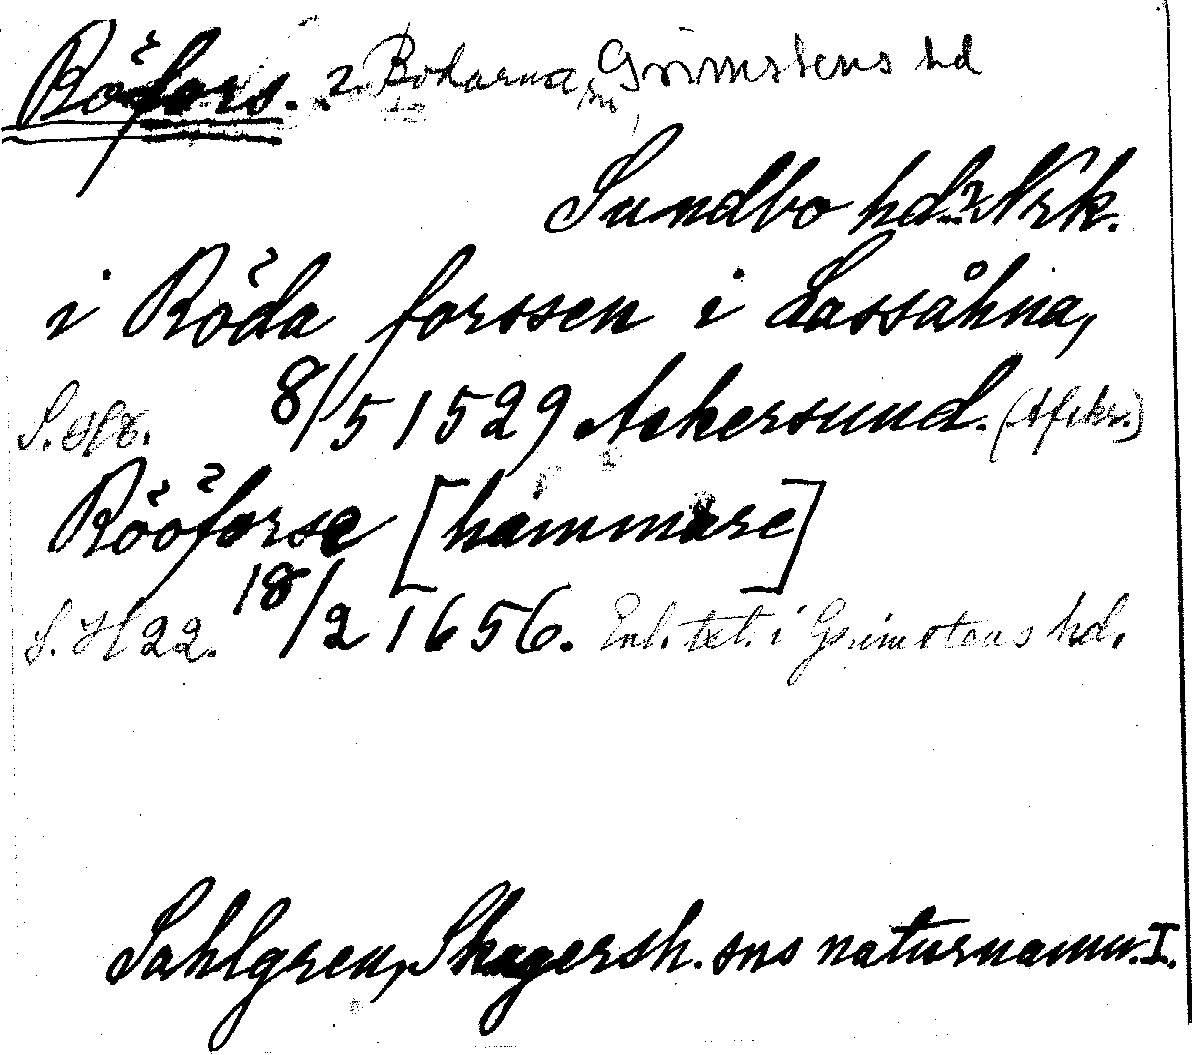 Röfors. 2. Bodarna, Grimstens hd
Sundbo hd? Nrk.
i Röda forssen i Lassåhna,
S. H 8. 8/5 1529 Askersund. (Afskr.)
Rööforse [hammare]
S. H 22. 18/2 1656. Enl. txt. i Grimstens hd.
Sahlgren, Skagersh. sns naturnamn. I.